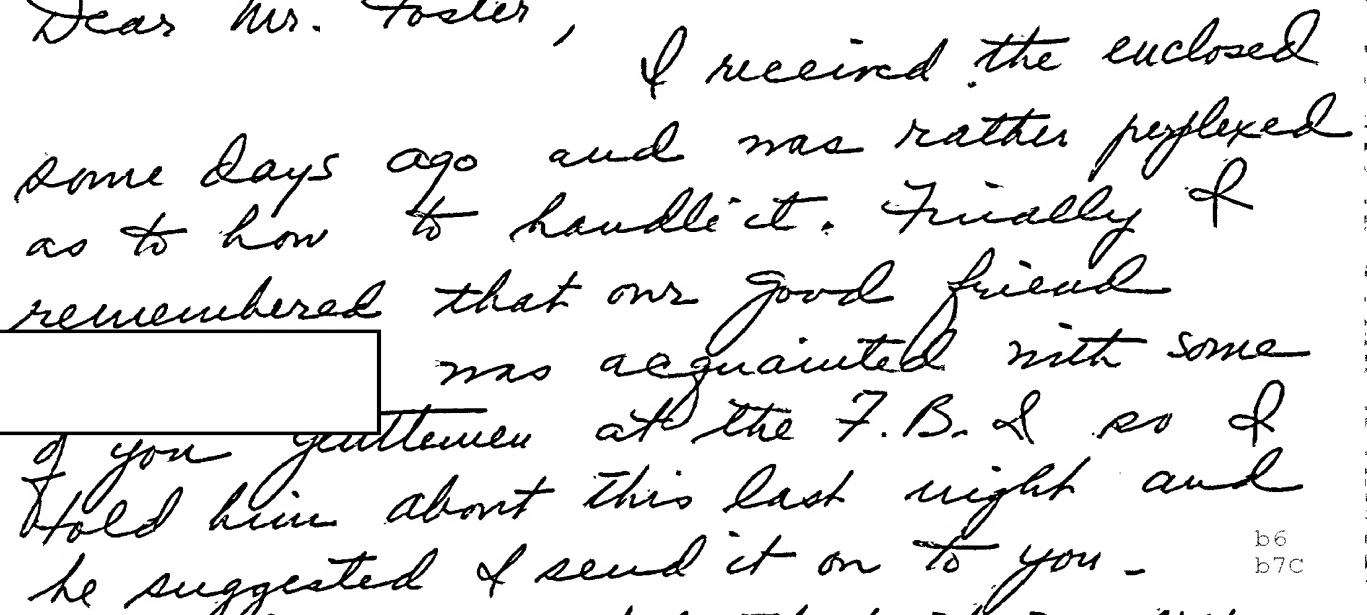 Dear Mr. Foster,
I received the enclosed
some days ago and was rather perplexed
as to how to handle it. Finally I
remembered that our good friend
was acquainted with some
of you gentlemen at the F.B.I so I
told him about this last night and
he suggested I send it on to you -
b6
b7C